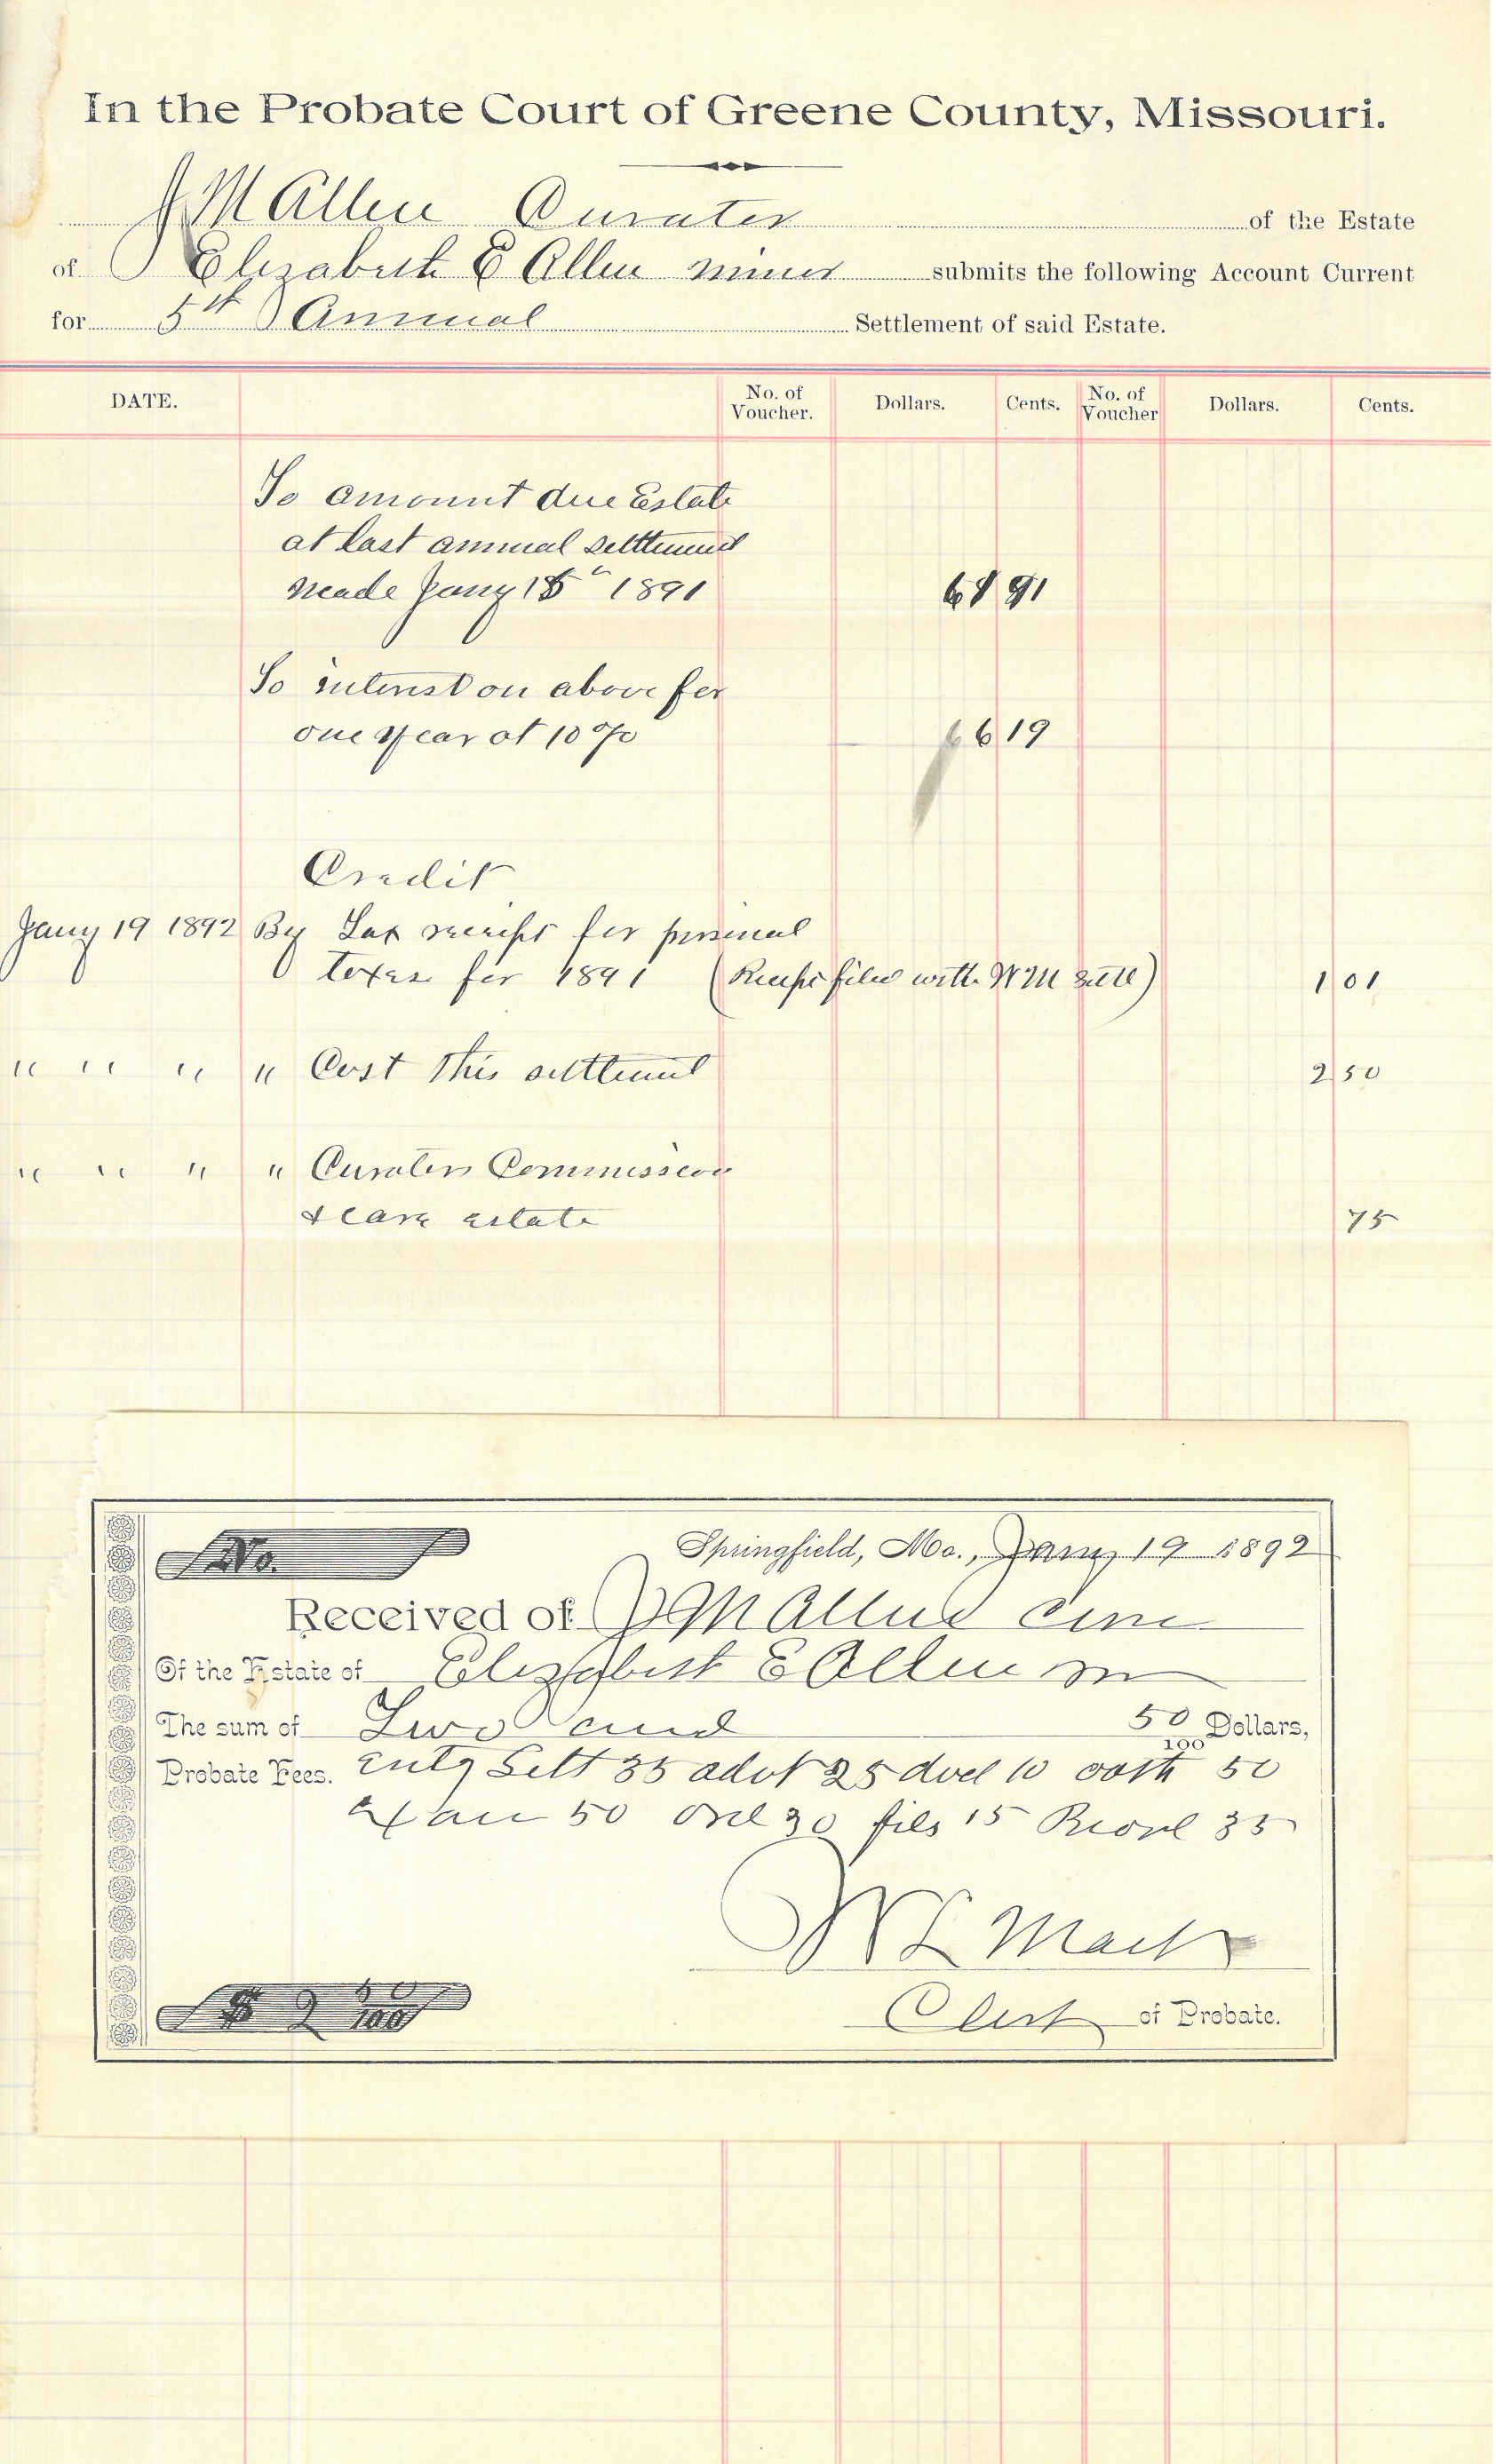 In the Probate Court of Greene County, Missouri.
J M Allen Curator of the Estate
of Elizabeth E Allen minor submits the following Account Current
for 5th Annual Settlement of said Estate.
DATE. No. of Voucher. Dollars. Cents. No. of Voucher Dollars. Cents.
To amount due Estate
at last annual settlement
made Jany 15" 1891 91
To interest on above for
one year at 10% 6 19
Credit
Jany 19 1892 By Tax receipt for personal
taxes for 1891 (Receipt filed with W M Settl) 1 01
" " " " Cost this settlement 2 50
" " " " Curators Commission
& care estate 75
No. Springfield, Mo., Jany 19 1892
Received of J M Allen cur
Of the Estate of Elizabeth E Allen m
The sum of Two and 50/100 Dollars,
Probate Fees. Entg Sett 35 advt 25 10 oath 50
Exam 50 Ord 30 file 15 Record 35
Clerk of Probate.
$ 2 50/100